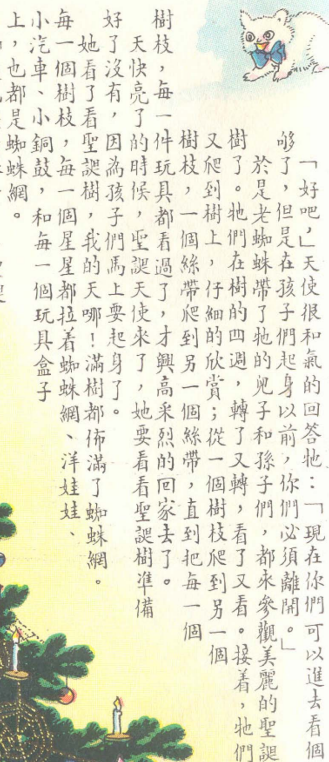 「好吧，」天使很和氣的回答牠：「現在你們可以進去看個
够了，但是在孩子們起身以前，你們必須離開。」
於是老蜘蛛帶了牠的兒子和孫子們，都來參觀美麗的聖誕
樹了。牠們在樹的四週，轉了又轉，看了又看。接着，牠們
又爬到樹上，仔細的欣賞；從一個樹枝爬到另一個
樹枝，一個絲帶爬到另一個絲帶，直到把每一個
樹枝，每一件玩具都看過了，才興高采烈的回家去了。
天快亮了的時候，聖誕天使來了，她要看看聖誕樹準備
好了沒有，因為孩子們馬上要起身了。
她看了看聖誕樹，我的天哪！滿樹都佈滿了蜘蛛網。
每一個樹枝，每一個星星都拉着蜘蛛網、洋娃娃、
小汽車、小銅鼓，和每一個玩具盒子
上，也都是蜘蛛網。